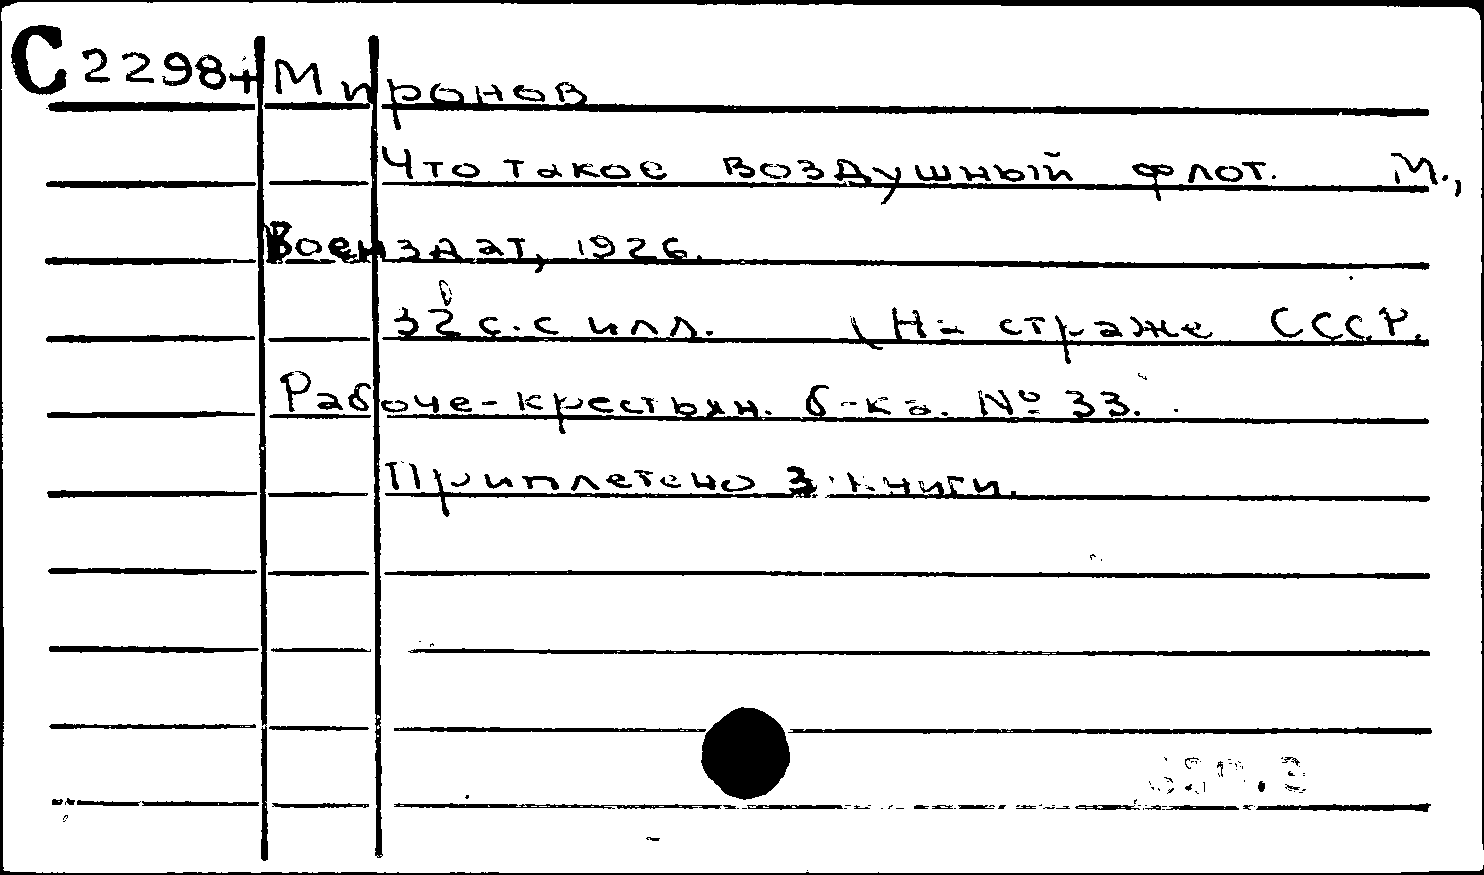 С 2298+ Миронов
Что такое воздушный флот. М.,
Воениздат, 1926.
32 с. с илл. (На страже СССР.
Рабоче-крестьян. б-ка. № 33.
Приплетено 3 книги.